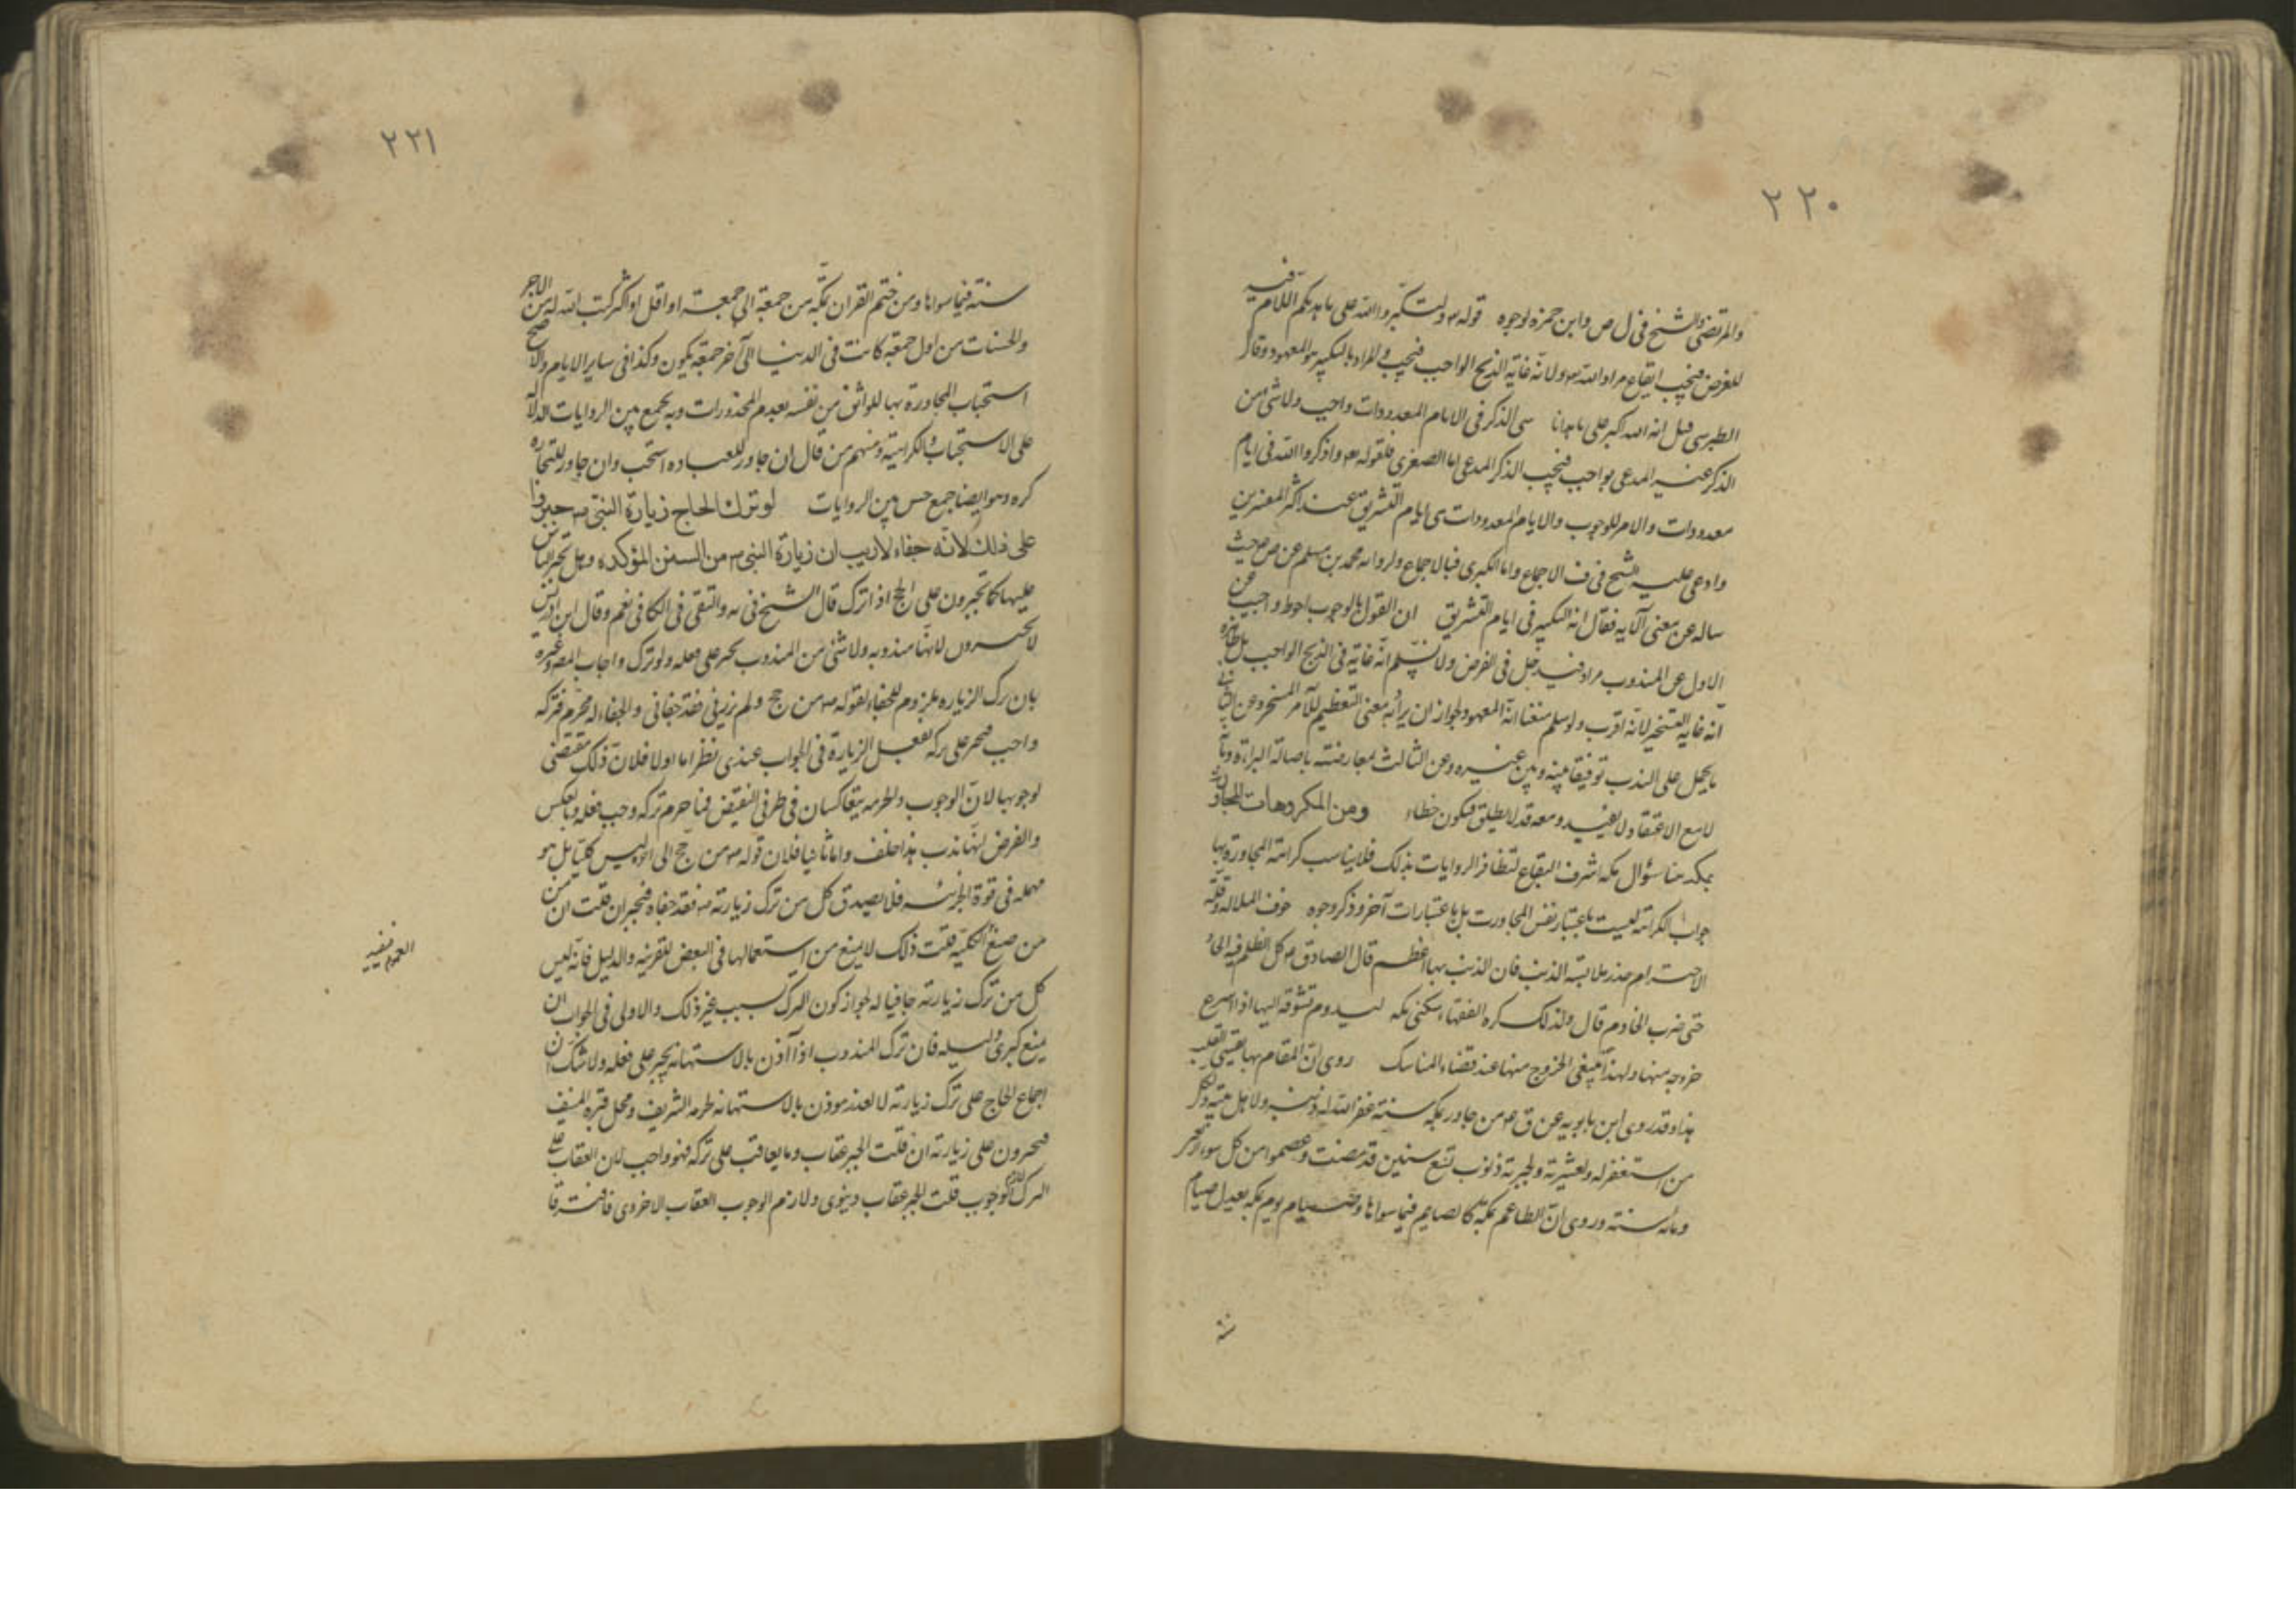 ٢٢٠
والمرتضى والشيخ فى ل ص وابن حمزه لوجوه قوله ولتكبروا الله على ما هديكم اللام فيه
للغرض فيجب ايقاع مراد الله ولانه غاية الذبح الواجب فيجب والمراد بالتكبير هو المعهود وقال
الطبرسى قيل انه الله اكبر على ما هدانا الذكر فى الايام المعدودات واجب ولا شئ من
الذكر غير المدعى بواجب فيجب الذكر المدعى اما الصغرى فلقوله واذكروا الله فى ايام
معدودات والامر للوجوب والايام المعدودات هى ايام التشريق عند اكثر المفسرين
وادعى عليه الشيخ فى ف الاجماع واما الكبرى فبالاجماع ولرواية محمد بن مسلم عن ص حيث
ساله عن معنى الآية فقال انه التكبير فى ايام التشريق ان القول بالوجوب احوط واجيب عن
الاول ان المندوب مراد فيدخل فى الغرض ولا نسلم انه غاية فى الذبح الواجب بل الظاهر
انه غاية التسخير لانه اقرب ولو سلم منعنا انه المعهود لجواز ان يراد به معنى التعظيم للآمر المسخر وعن الثانى
ما يحمل على الندب توفيقا بينه وبين غيره وعن الثالث بمعارضته باصالة البراءة وبانه
لا مع الاعتقاد لا يفيد ومعه قد لا يطابق فيكون خطاء ومن المكروهات المجاورة
بمكه هنا سؤال مكه اشرف البقاع لتظافر الروايات بذلك فلا يناسب كراهة المجاورة بها
جواب الكراهة ليست باعتبار نفس المجاورت بل باعتبارات آخر وذكر وجوه خوف الملالة وقلة
الاحترام حذر ملابسة الذنب فان الذنب بها اعظم قال الصادق كل الظلم فيه الحاد
حتى ضرب الخادم قال ولذلك كره الفقهاء سكنى مكه ليدوم تشوقه اليها اذا اسرع
خروجه منها ولهذا ينبغى الخروج منها عند قضاء المناسك روى ان المقام بها يقسى القلب
هذا وقد روى ابن بابويه عن ق من جاور بمكه سنة غفر الله له ذنبه ولاهل بيته ولكل
من استغفر له ولعشيرته ولجيرته ذنوب تسع سنين قد مضت وعصموا من كل سوء اربعين
ومائة سنة وروى ان الطاعم بمكة كالصايم فيما سواها وصيام يوم بمكه يعدل صيام
سنة
٢٢١
سنة فيما سواها ومن ختم القران بمكه من جمعة الى جمعة او اقل او اكثر كتب الله له من الاجر
والحسنات من اول جمعة كانت فى الدنيا الى آخر جمعة يكون وكذا فى ساير الايام والاصح
استحباب المجاورة بها للواثق من نفسه بعدم المحذورات وبه يجمع بين الروايات الدالة
على الاستحباب والكراهية ومنهم من قال ان جاور للعباده استحب وان جاور للتجاره
كره وهو ايضا جمع حسن بين الروايات لو ترك الحاج زيارة النبى جبروا
على ذلك لانه جفاء لا ريب ان زيارة النبى من السنن المؤكده وهل يجبر الناس
عليها كما يجبرون على الحج اذا ترك قال الشيخ فى يه والتقى فى الكافى نعم وقال ابن ادريس
لا يجبرون لانها مندوبه ولا شئ من المندوب يجبر على فعله ولو ترك واجاب المصه وغيره
بان ترك الزياره ملزوم للجفاء لقوله من حج ولم يزرنى فقد جفانى والجفاء له محرم فتركه
واجب فيجبر على تركه بفعل الزيارة فى الجواب عندى نظر اما اولا فلان ذلك يقتضى
لوجوبها لان الوجوب والحرمه يتعاكسان فى طرفى النقيض فما حرم تركه وجب فعله وبالعكس
والفرض انها ندب هذا خلف واما ثانيا فلان قوله من حج الى اخره ليس كليا بل هو
مهمله فى قوة الجزئيه فلا يصدق كل من ترك زيارته فقد جفاه فيجبر ان قلت ان من
من صيغ الكليه قلت ذلك لا يمنع من استعمالها فى البعض للقرينه والدليل فانه ليس
كل من ترك زيارته جافيا له لجواز كون الترك بسبب غير ذلك والاولى فى الجواب ان
يمنع كبرى دليله فان ترك المندوب اذا آذن بالاستهانة يجبر على فعله ولا شك ان
اجماع الحاج على ترك زيارته لا لعذر موذن بالاستهانه بحرمه الشريف ومحل قبره المنيف
فيجبرون على زيارته ان قلت الجبر عقاب وما يعاقب على تركه فهو واجب لان العقاب على
الترك لازم الوجوب قلت الجبر عقاب دنيوى ولازم الوجوب العقاب الاخروى فافترقا
العموم فيفيد